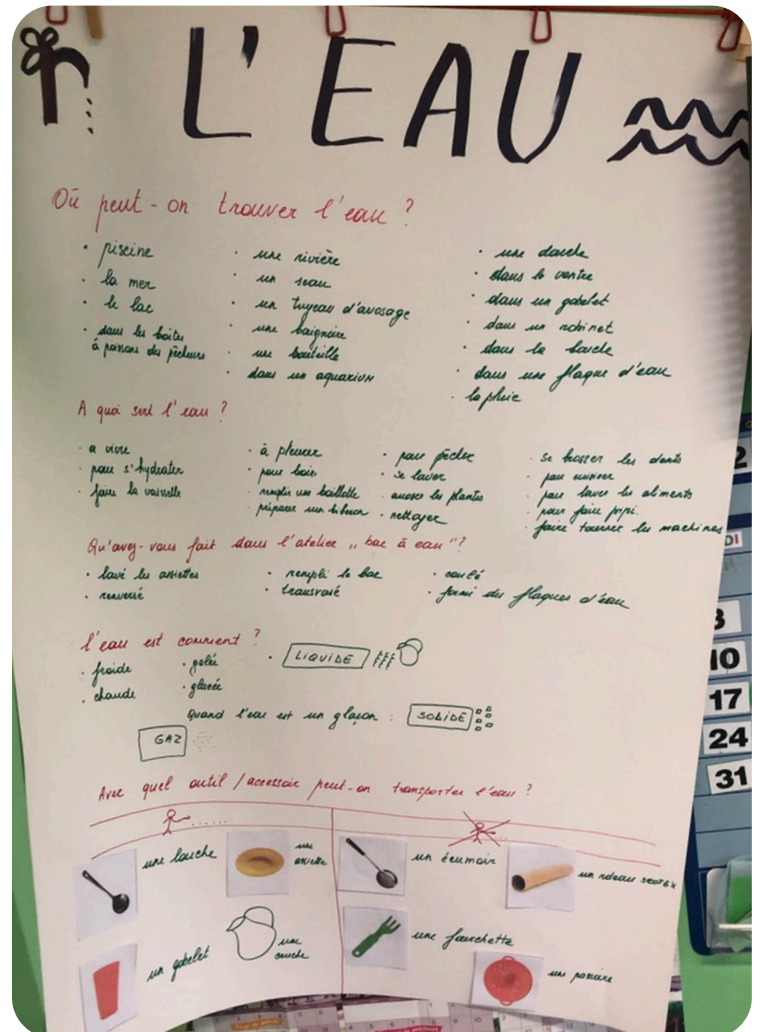 L'EAU
Où peut-on trouver l'eau ?
• piscine
• la mer
• le lac
• dans les boites
à poissons des pêcheurs
• une rivière
• un seau
• un tuyeau d'arrosage
• une baignoire
• une bouteille
• dans un aquarium
• une douche
• dans le ventre
• dans un gobelet
• dans un robinet
• dans la bouche
• dans une flaque d'eau
• la pluie
A quoi sert l'eau ?
• a vivre
• pour s'hydrater
• faire la vaisselle
• à pleurer
• pour boire
• remplir une
• préparer un biberon
• pour pêcher
• se laver
arroser les plantes
• nettoyer
• se brosser les dents
• pour cuisiner
• pour laver les aliments
• pour faire pipi
• faire tourner les machines
Qu'avez-vous fait dans l'atelier „ bac à eau "?
• lavé les assiettes
• renversé
• rempli le bac
• transvasé
• coulé
• formé des flaques d'eau
l'eau est comment ?
• froide
• chaude
• gelée
• glacée
• LIQUIDE
Quand l'eau est un glaçon : SOLIDE
GAZ
Avec quel outil / accessoir peut-on transporter l'eau ?
une louche
une
assiette
un gobelet
une
cruche
un écumoir
un rouleau
une fourchette
une passoire
2
DI
3
10
17
24
31